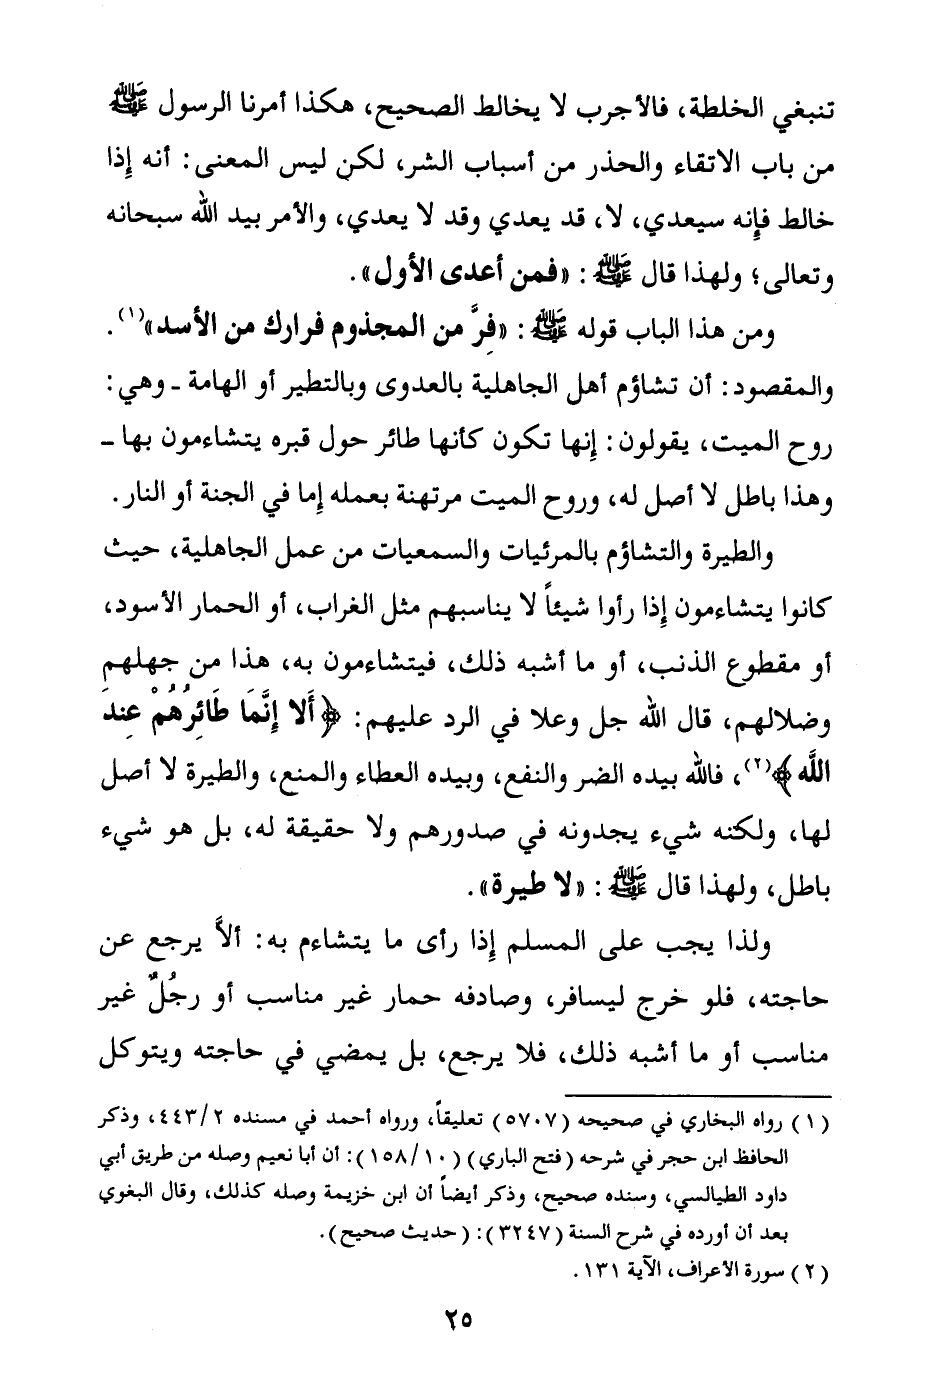 تنبغي الخلطة، فالأجرب لا يخالط الصحيح، هكذا أمرنا الرسول ﷺ
من باب الاتقاء والحذر من أسباب الشر، لكن ليس المعنى: أنه إذا
خالط فإنه سيعدي، لا، قد يعدي وقد لا يعدي، والأمر بيد الله سبحانه
وتعالى؛ ولهذا قال ﷺ: «فمن أعدى الأول».
ومن هذا الباب قوله ﷺ: «فِرَّ من المجذوم فرارك من الأسد»(١).
والمقصود: أن تشاؤم أهل الجاهلية بالعدوى وبالتطير أو الهامة ـ وهي:
روح الميت، يقولون: إنها تكون كأنها طائر حول قبره يتشاءمون بها ـ
وهذا باطل لا أصل له، وروح الميت مرتهنة بعمله إما في الجنة أو النار.
والطيرة والتشاؤم بالمرئيات والسمعيات من عمل الجاهلية، حيث
كانوا يتشاءمون إذا رأوا شيئاً لا يناسبهم مثل الغراب، أو الحمار الأسود،
أو مقطوع الذنب، أو ما أشبه ذلك، فيتشاءمون به، هذا من جهلهم
وضلالهم، قال الله جل وعلا في الرد عليهم: ﴿أَلَا إِنَّمَا طَائِرُهُمْ عِندَ
اللَّه﴾(٢)، فالله بيده الضر والنفع، وبيده العطاء والمنع، والطيرة لا أصل
لها، ولكنه شيء يجدونه في صدورهم ولا حقيقة له، بل هو شيء
باطل، ولهذا قال ﷺ: «لا طيرة».
ولذا يجب على المسلم إذا رأى ما يتشاءم به: ألاَّ يرجع عن
حاجته، فلو خرج ليسافر، وصادفه حمار غير مناسب أو رجُلٌ غير
مناسب أو ما أشبه ذلك، فلا يرجع، بل يمضي في حاجته ويتوكل
(١) رواه البخاري في صحيحه (٥٧٠٧) تعليقاً، ورواه أحمد في مسنده ٢/ ٤٤٣، وذكر
الحافظ ابن حجر في شرحه (فتح الباري) (١٠/ ١٥٨): أن أبا نعيم وصله من طريق أبي
داود الطيالسي، وسنده صحيح، وذكر أيضاً أن ابن خزيمة وصله كذلك، وقال البغوي
بعد أن أورده في شرح السنة (٣٢٤٧): (حديث صحيح).
(٢) سورة الأعراف، الآية ١٣١.
٢٥